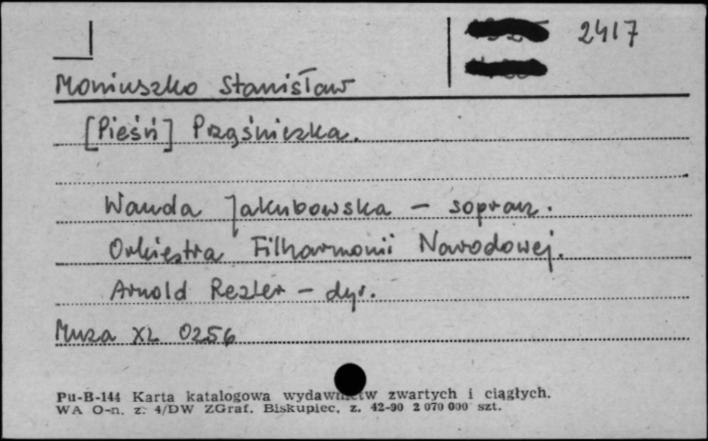 2417
Moniuszko Stanisław
[Pieśń] Prząśniczka.
Wanda Jakubowska – sopran.
Orkiestra Filharmonii Narodowej.
Arnold Rezler – dyr.
Muza XL 0256
Pu-B-144 Karta katalogowa wydawnictw zwartych i ciągłych.
WA O-n. z. 4/DW ZGraf. Biskupiec, z. 42-90 2 070 000 szt.